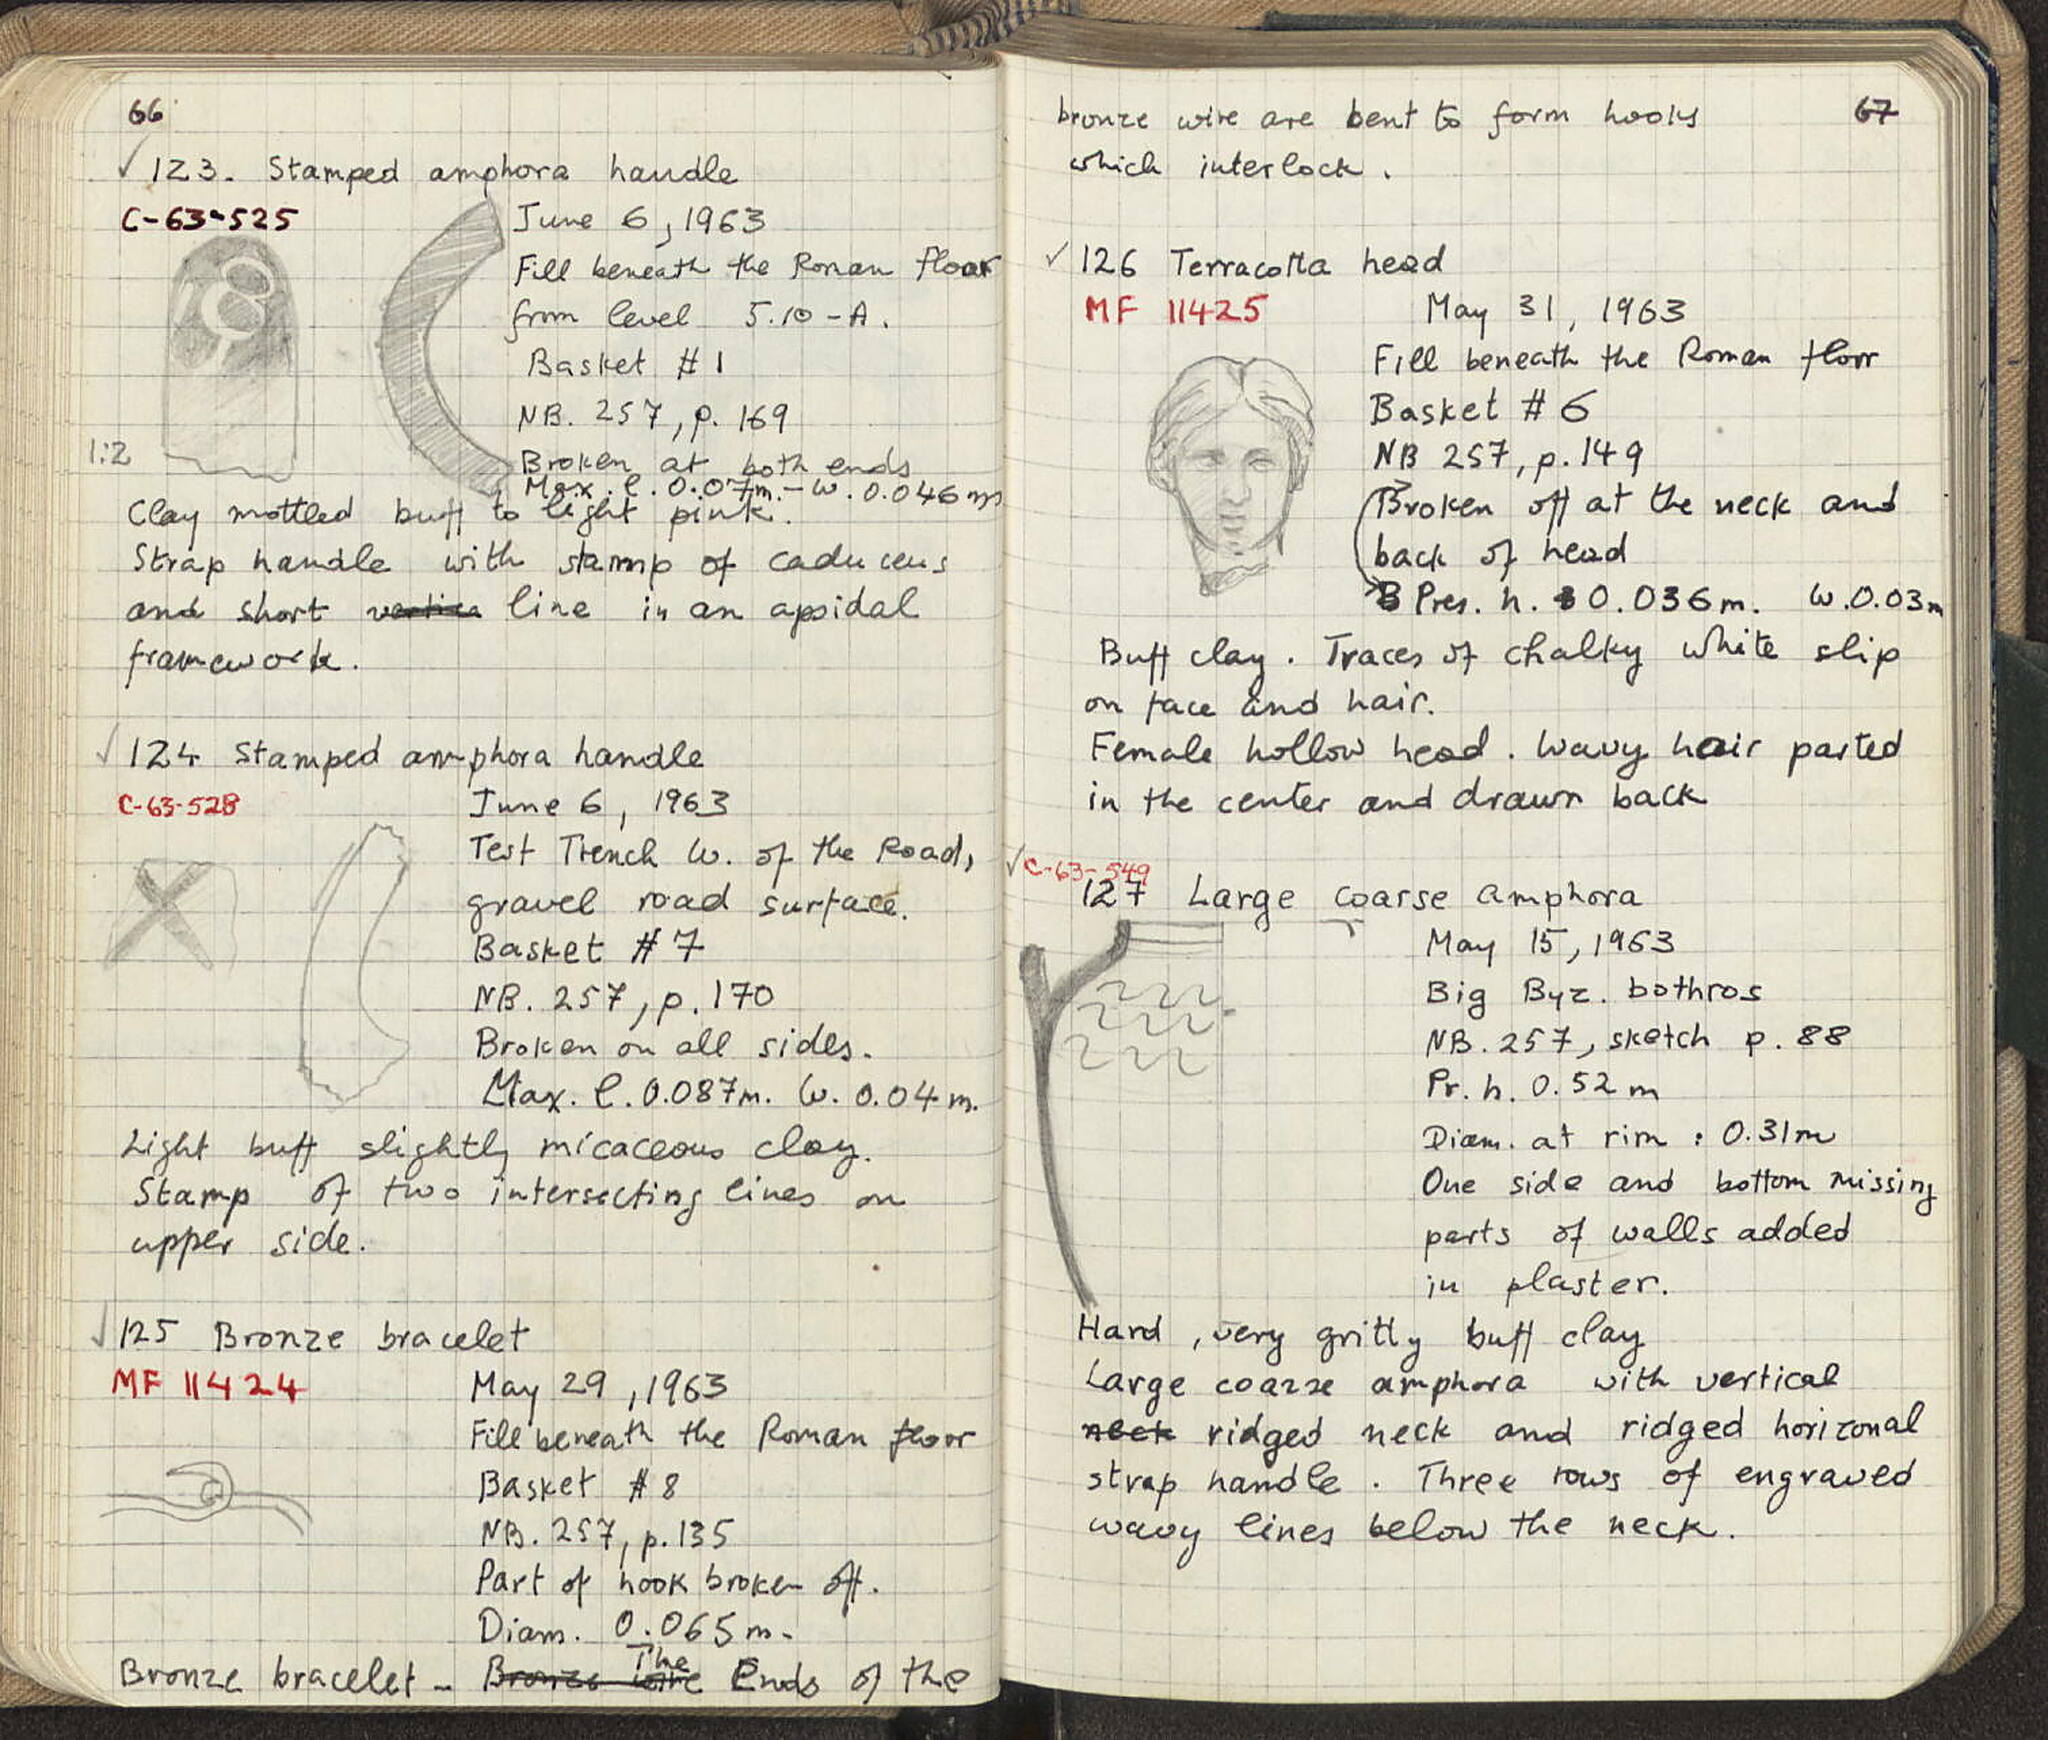 66
✓ 123. Stamped amphora handle
C-63-525
June 6, 1963
Fill beneath the Roman floor
from level 5.10-A.
Basket # 1
NB. 257, p. 169
1:2
Broken at both ends
Max. l. 0.07m. - W. 0.046 m
Clay mottled buff to light pink.
Strap handle with stamp of caduceus
and short vertica line in an apsidal
framework.
✓ 124 Stamped amphora handle
C-63-528
June 6, 1963
Test Trench W. of the Road,
gravel road surface.
Basket # 7
NB. 257, p. 170
Broken on all sides.
Max. l. 0.087m. W. 0.04 m.
Light buff slightly micaceous clay.
Stamp of two intersecting lines on
upper side.
✓ 125 Bronze bracelet
MF 11424
May 29, 1963
Fill beneath the Roman floor
Basket # 8
NB. 257, p. 135
Part of hook broken off.
Diam. 0.065 m.
Bronze bracelet - Bronze wire The Ends of the
67
bronze wire are bent to form hooks
which interlock.
✓ 126 Terracotta head
MF 11425
May 31, 1963
Fill beneath the Roman floor
Basket # 6
NB 257, p. 149
Broken off at the neck and
back of head
B Pres. h. 0.036 m. W. 0.03 m
Buff clay. Traces of chalky white slip
on face and hair.
Female hollow head. Wavy hair parted
in the center and drawn back
✓ C-63-549
127 Large coarse amphora
May 15, 1963
Big Byz. bothros
NB. 257, sketch p. 88
Pr. h. 0.52 m
Diam. at rim : 0.31 m
One side and bottom missing
parts of walls added
in plaster.
Hard, very gritty buff clay
Large coarse amphora with vertical
neck ridged neck and ridged horizonal
strap handle. Three rows of engraved
wavy lines below the neck.